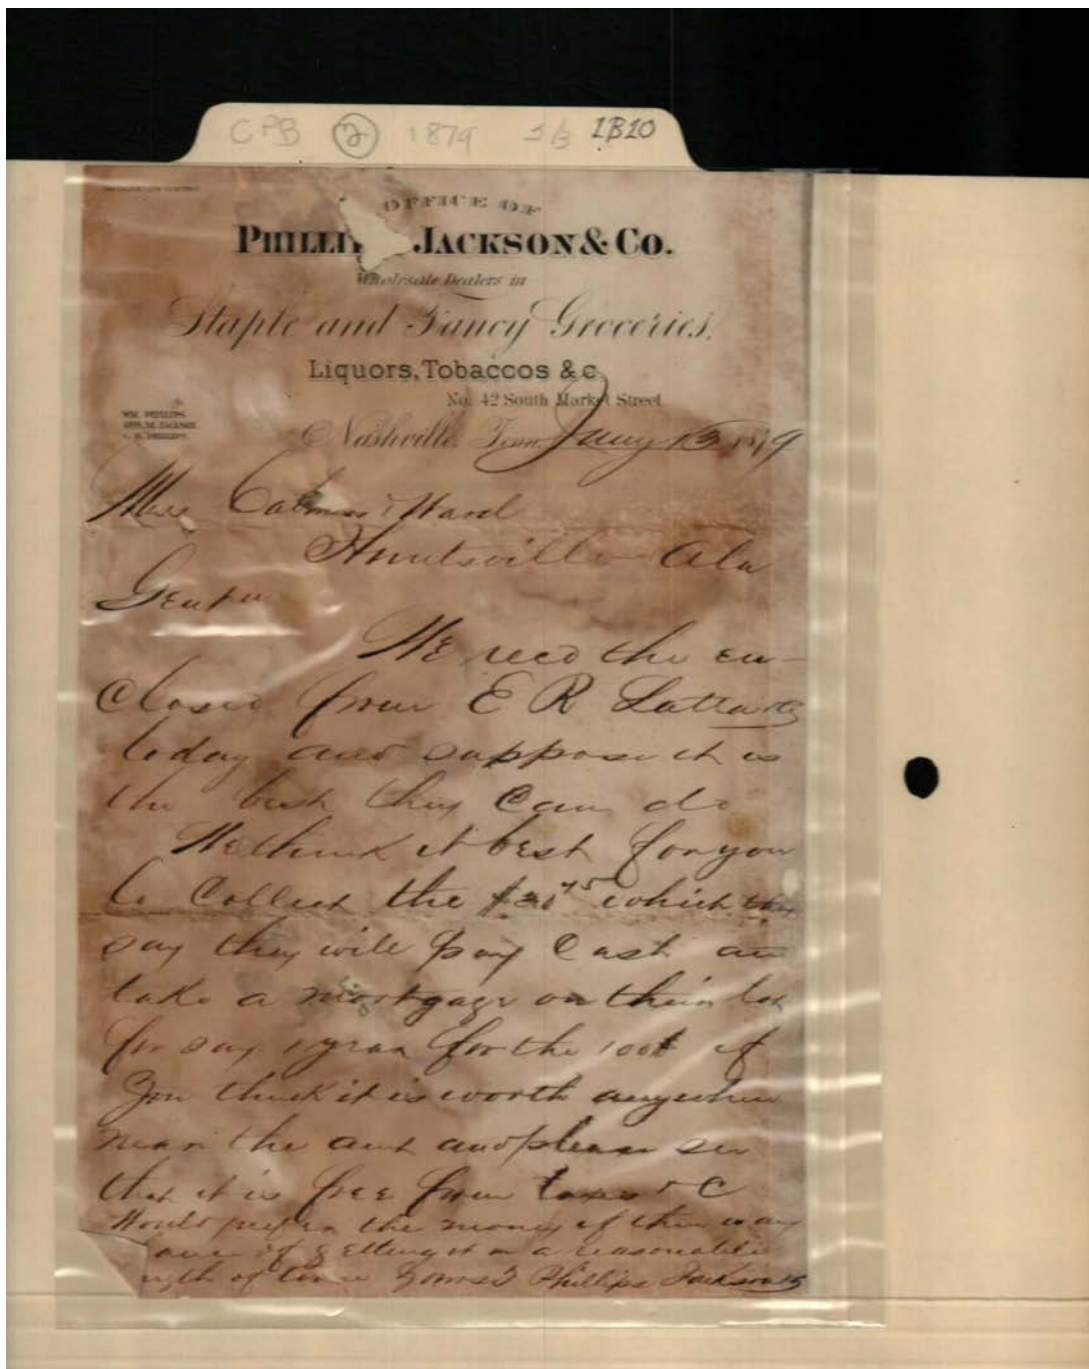 CPB 2 1879 IB10
OFFICE OF
PHILLI JACKSON & CO.
Wholesale Dealers in
Staple and Fancy Groceries,
Liquors, Tobaccos & c
No. 42 South Market Street
WM. PHILLIPS.
JACKSON
PHILLIPS.
Nashville, Tenn 13 1879
Cabaniss & Ward
Huntsville Ala
We recd the en-
closed from E R Latta
today and suppose it is
the best they can do
We think it best for you
to Collect the which they
say they will pay Cash an
take a mortgage on their lot
for say 1 year for the 100$ if
you think it is worth anywhere
near the amt and please see
that it is free from taxes & C
Would prefer the money if there is any
ance of getting it in a reasonable
ngth of time Yours Phillips Jackson